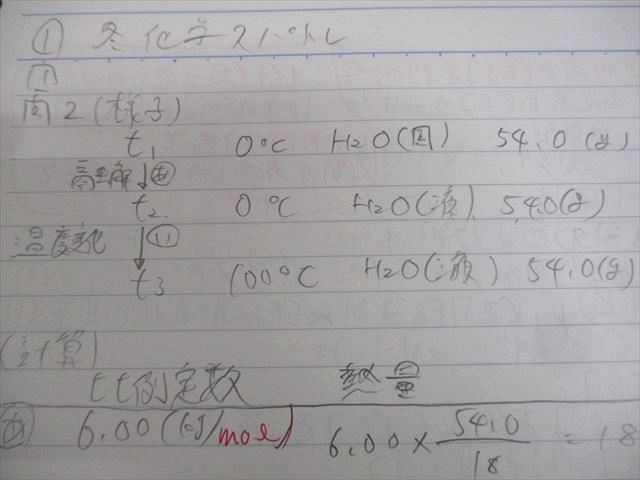 ① 冬化学スパトレ
①
問2(様子)
t₁ 0℃ H₂O(固) 54.0(g)
融解↓㋐
t₂ 0℃ H₂O(液) 54.0(g)
温度変化↓㋑
t₃ 100℃ H₂O(液) 54.0(g)
(計算)
比例定数 熱量
㋐ 6.00(kJ/mol) 6.00×54.0/18=18